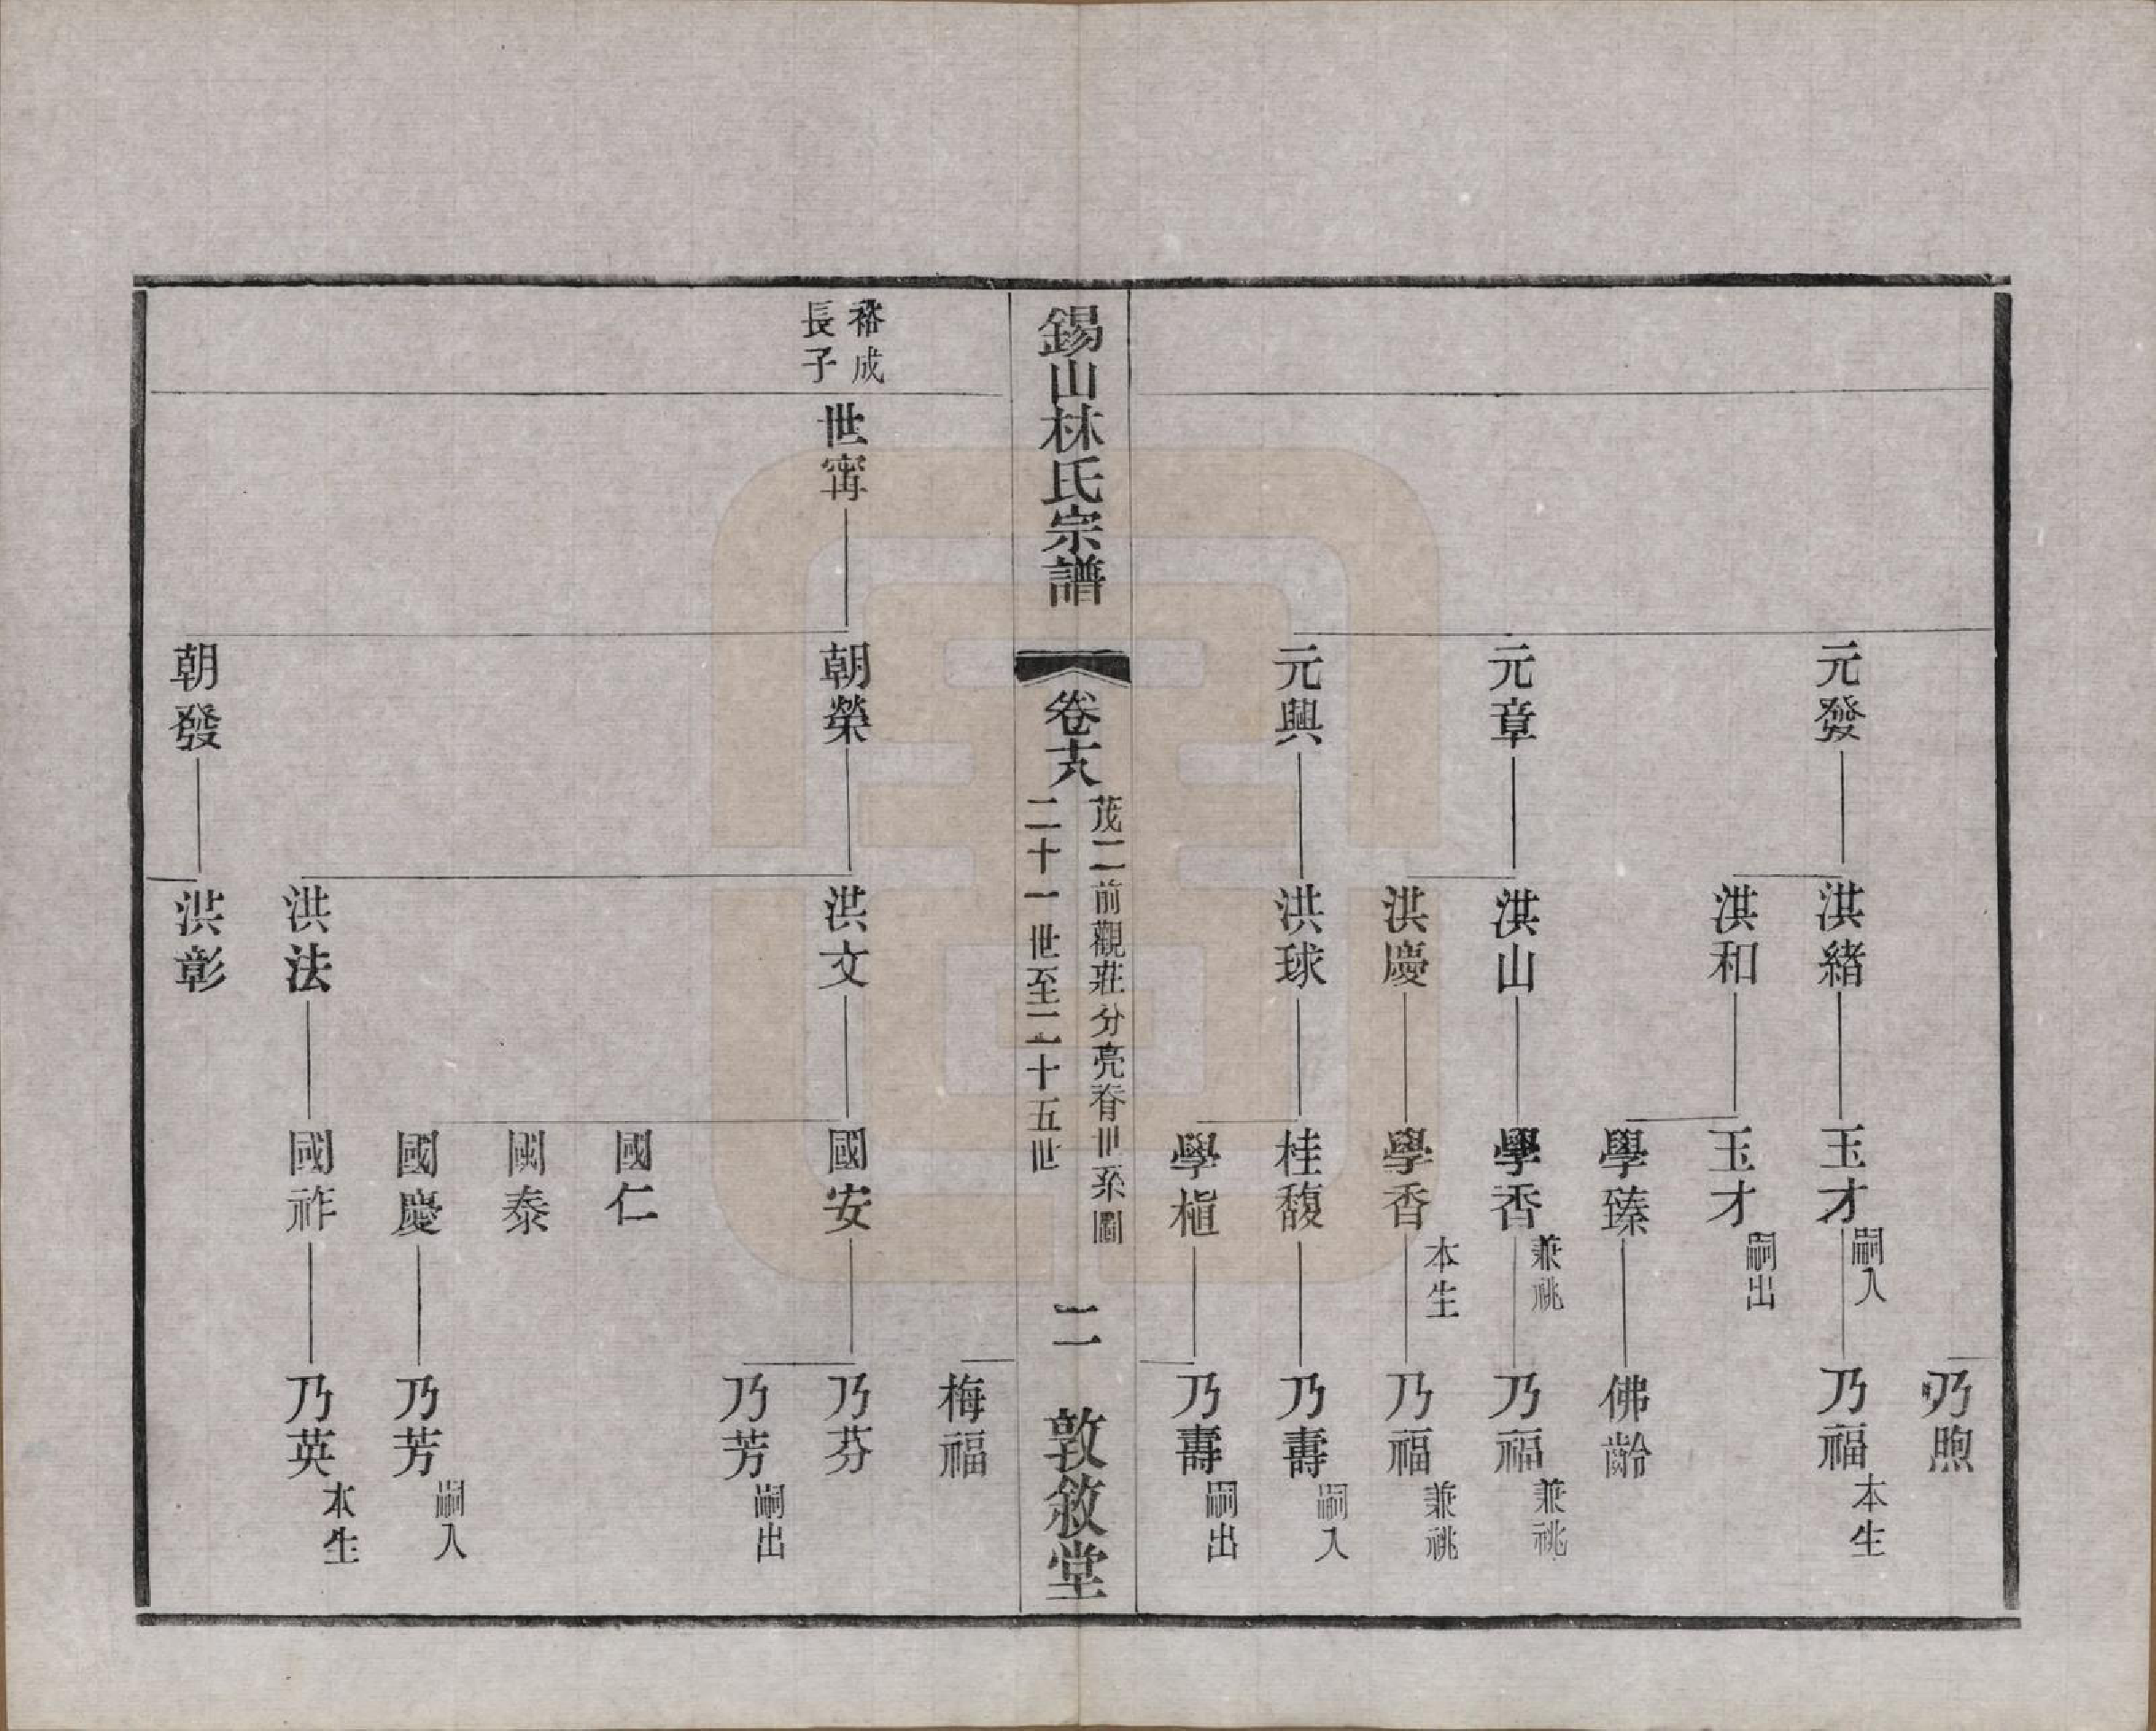 乃煦
元發
洪緒
玉才
嗣入
乃福
本生
洪和
玉才
嗣出
學臻
佛齡
元章
洪山
學香
兼祧
乃福
兼祧
洪慶
學香
本生
乃福
兼祧
元興
洪球
桂馥
乃壽
嗣入
學樞
乃壽
嗣出
錫山林氏宗譜
卷十八
茂二前觀莊分亮脊世系圖
二十一世至二十五世
二
敦敘堂
梅福
裕成
長子
世甯
朝榮
洪文
國安
乃芬
乃芳
嗣出
國仁
國泰
國慶
乃芳
嗣入
洪法
國祚
乃英
本生
朝發
洪彰